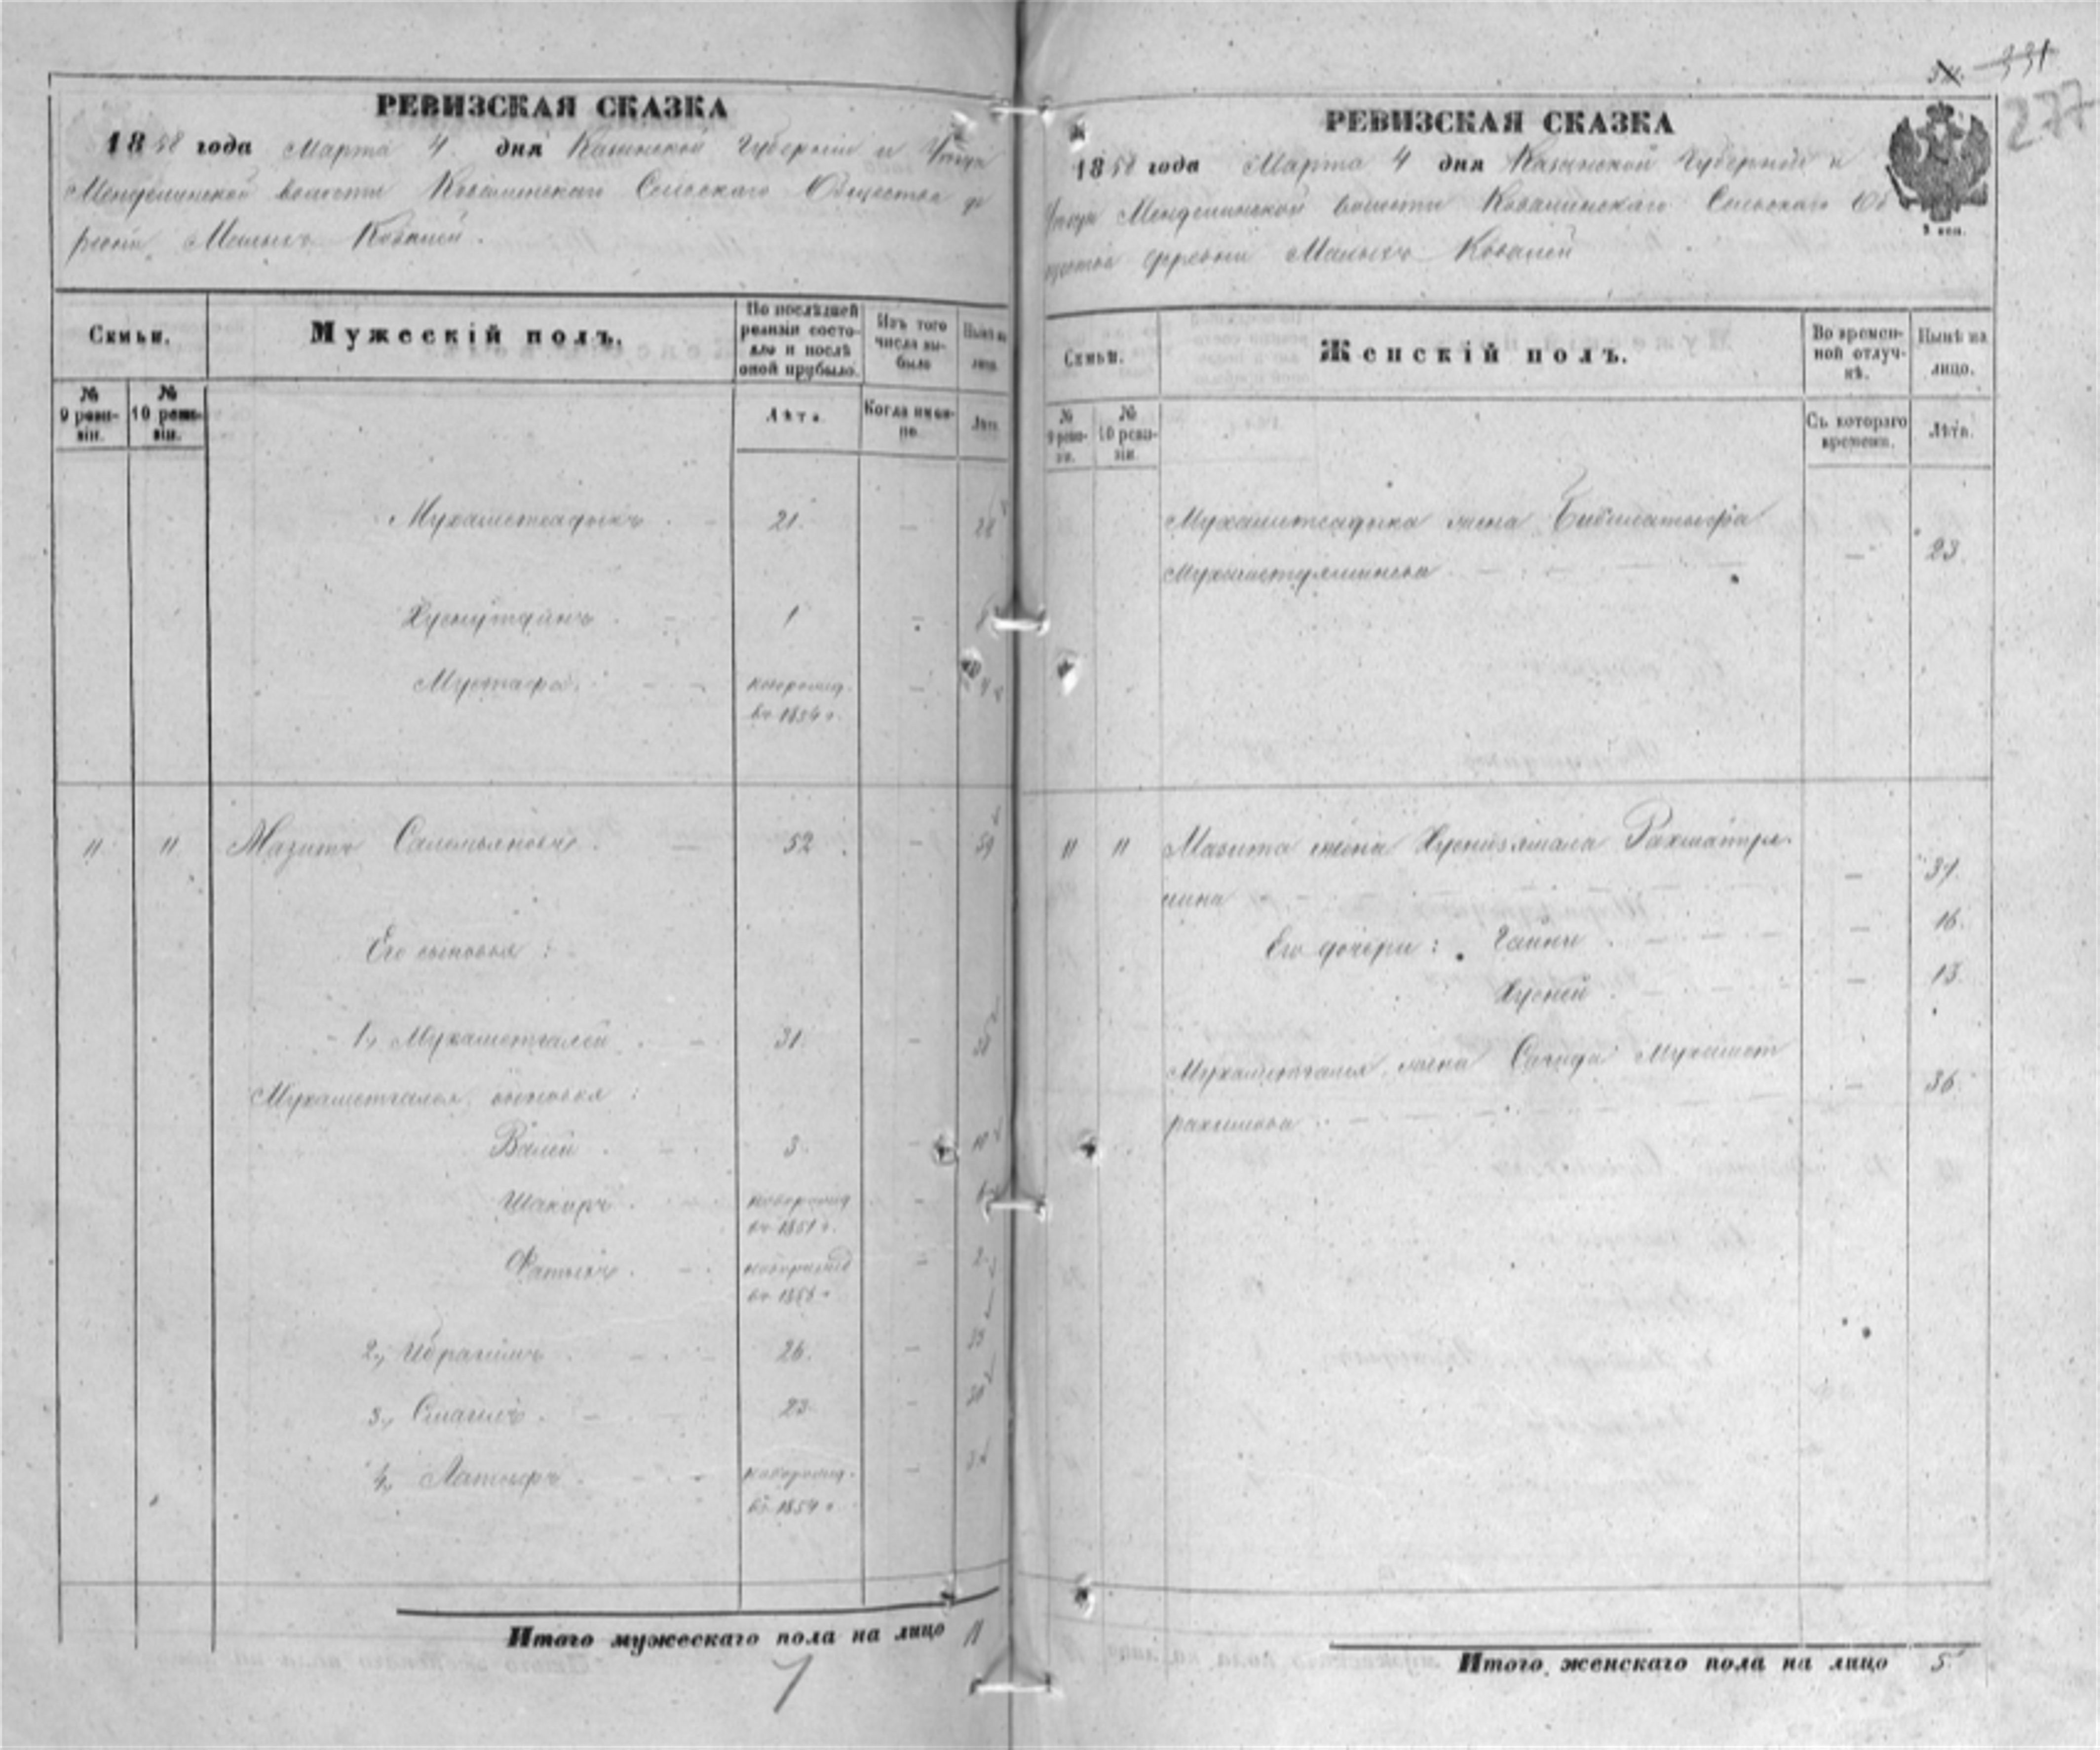 РЕВИЗСКАЯ СКАЗКА
1858 года Марта 4 дня Казанской Губернiи и Уѣзда
Менделинской волости Ковалинскаго Сельскаго Общества де
ревни Малыхъ Ковалей.
Семьи.
Мужескiй полъ.
По послѣдней ревизiи состо-
яло и послѣ оной прубыло.
Изъ того числа вы-
было
Нынѣ на лицо
№ 9 реви-
зiи.
№ 10 реви-
зiи.
Лѣта.
Когда имен-
но
Лѣта
Мухаметсадыкъ 21. 28
Хуснутдинъ 1
Мустафа новорожд. 4
въ 1854 г.
11 11 Мазитъ Салемьяновъ 52 59
Его сыновья:
1, Мухаметгалей 31. 38
Мухаметгалея сыновья:
Валей 3. 10
Шакиръ новорожд
въ 1851 г.
Фатыхъ новорожд 2
2, Ибрагимъ 26. 33
3, Смагилъ 23 30
4, Латыфъ новорожд.
въ 1854 г
Итого мужескаго пола на лицо 11
7
331
277
РЕВИЗСКАЯ СКАЗКА
1858 года Марта 4 дня Казанской Губернiи и
Уѣзда Менделинской волости Ковалинскаго Сельскаго Об
щества деревни Малыхъ Ковалей
Семьи.
Женскiй полъ.
Во времен-
ной отлуч-
кѣ.
Нынѣ на
лицо.
№ 9 реви-
зiи.
№ 10 реви-
зiи
Съ котораго
времени.
Лѣта.
Мухаметсадыка жена Бибилатыфа
23.
11 11 Мазита жена Хуснизямала Рахматул
лина 37.
Его дочери: 16.
Хусней 13.
Мухаметгалея жена Сагида Мухамет
рахимова 36.
Итого женскаго пола на лицо 5